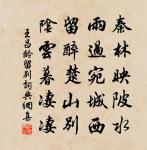 秦林映陂水
雨過宛城西
留醉楚山別
陰雲暮凄凄
王昌齡留別詞典網集